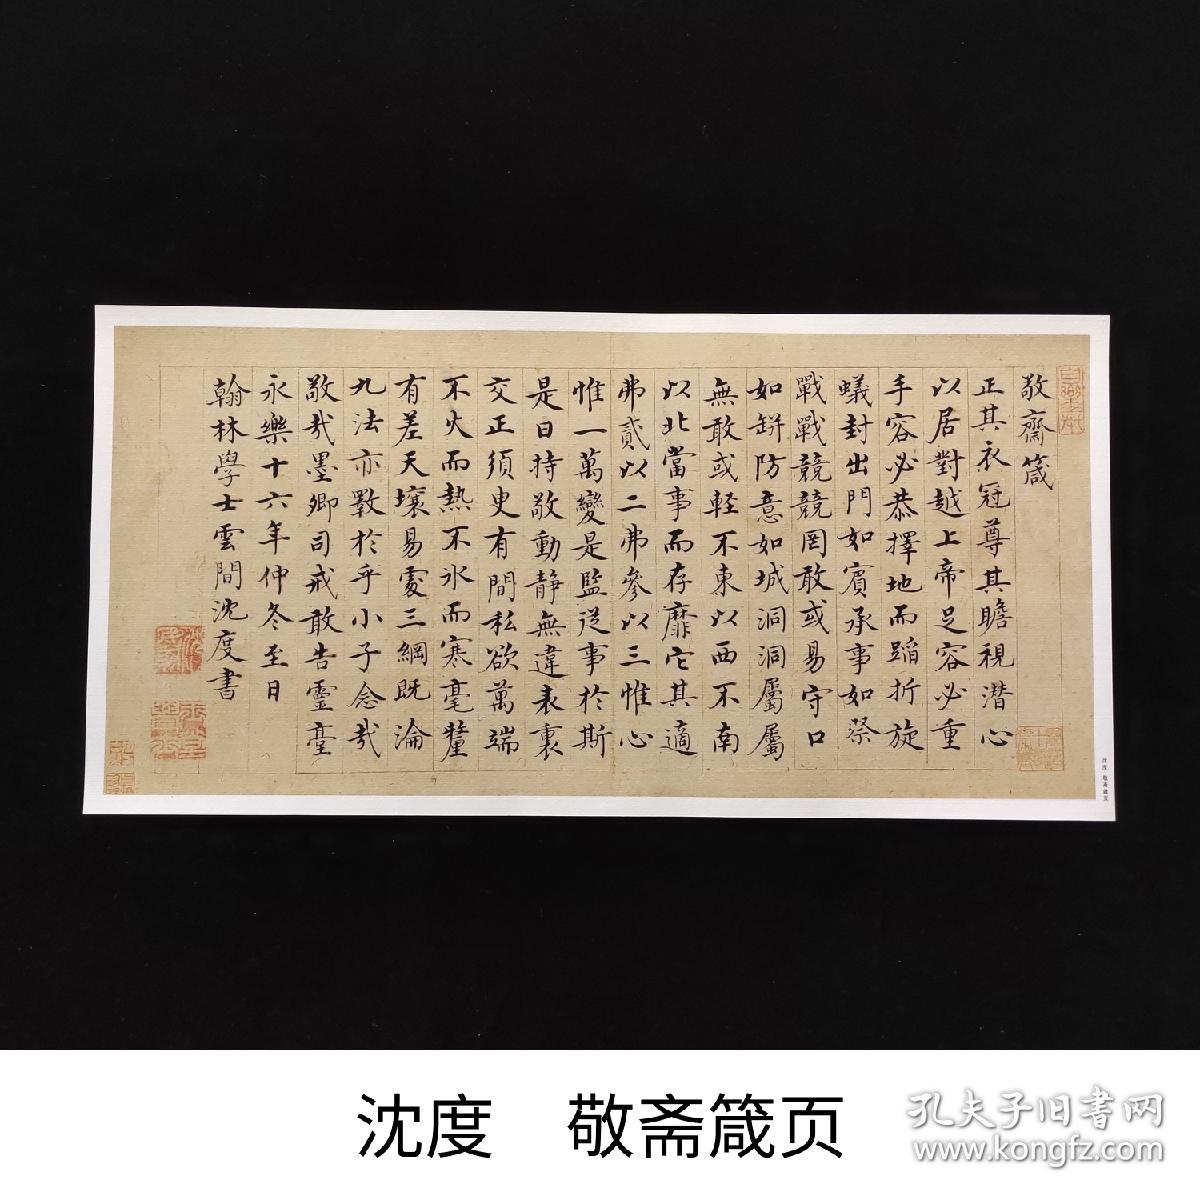 敬齋箴
正其衣冠尊其瞻視潜心
以居對越上帝足容必重
手容必恭擇地而蹈折旋
蟻封出門如賓承事如祭
戰戰兢兢罔敢或易守口
如缾防意如城洞洞屬屬
無敢或輕不東以西不南
以北當事而存靡它其適
弗貳以二弗參以三惟心
惟一萬變是監從事於斯
是曰持敬動静無違表裏
交正須臾有間私欲萬端
不火而熱不氷而寒毫釐
有差天壤易處三綱既淪
九法亦斁於乎小子念哉
敬哉墨卿司戒敢告靈臺
永樂十六年仲冬至日
翰林學士雲間沈度書
沈度 敬斋箴页
沈度 敬斋箴页
孔夫子旧書网
www.kongfz.com